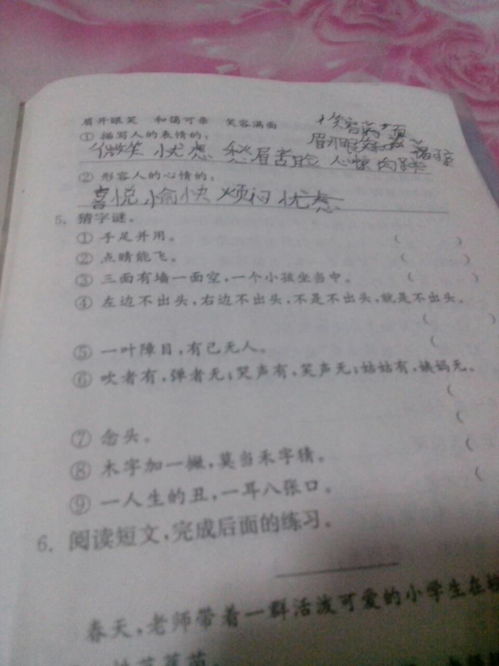 眉开眼笑 和蔼可亲 笑容满面
笑容满面
① 描写人的表情的:
微笑 忧愁 愁眉苦脸
② 形容人的心情的:
喜悦 愉快 烦闷 忧愁
5. 猜字谜。
① 手足并用。 ( )
② 点睛能飞。 ( )
③ 三面有墙一面空,一个小孩坐当中。 ( )
④ 左边不出头,右边不出头,不是不出头,就是不出头。
( )
⑤ 一叶障目,有己无人。 ( )
⑥ 吹者有,弹者无;哭声有,笑声无;姑姑有,姨妈无。
(
⑦ 念头。 (
⑧ 木字加一撇,莫当禾字猜。 (
⑨ 一人生的丑,一耳八张口。 (
6. 阅读短文,完成后面的练习。
春天,老师带着一群活泼可爱的小学生在